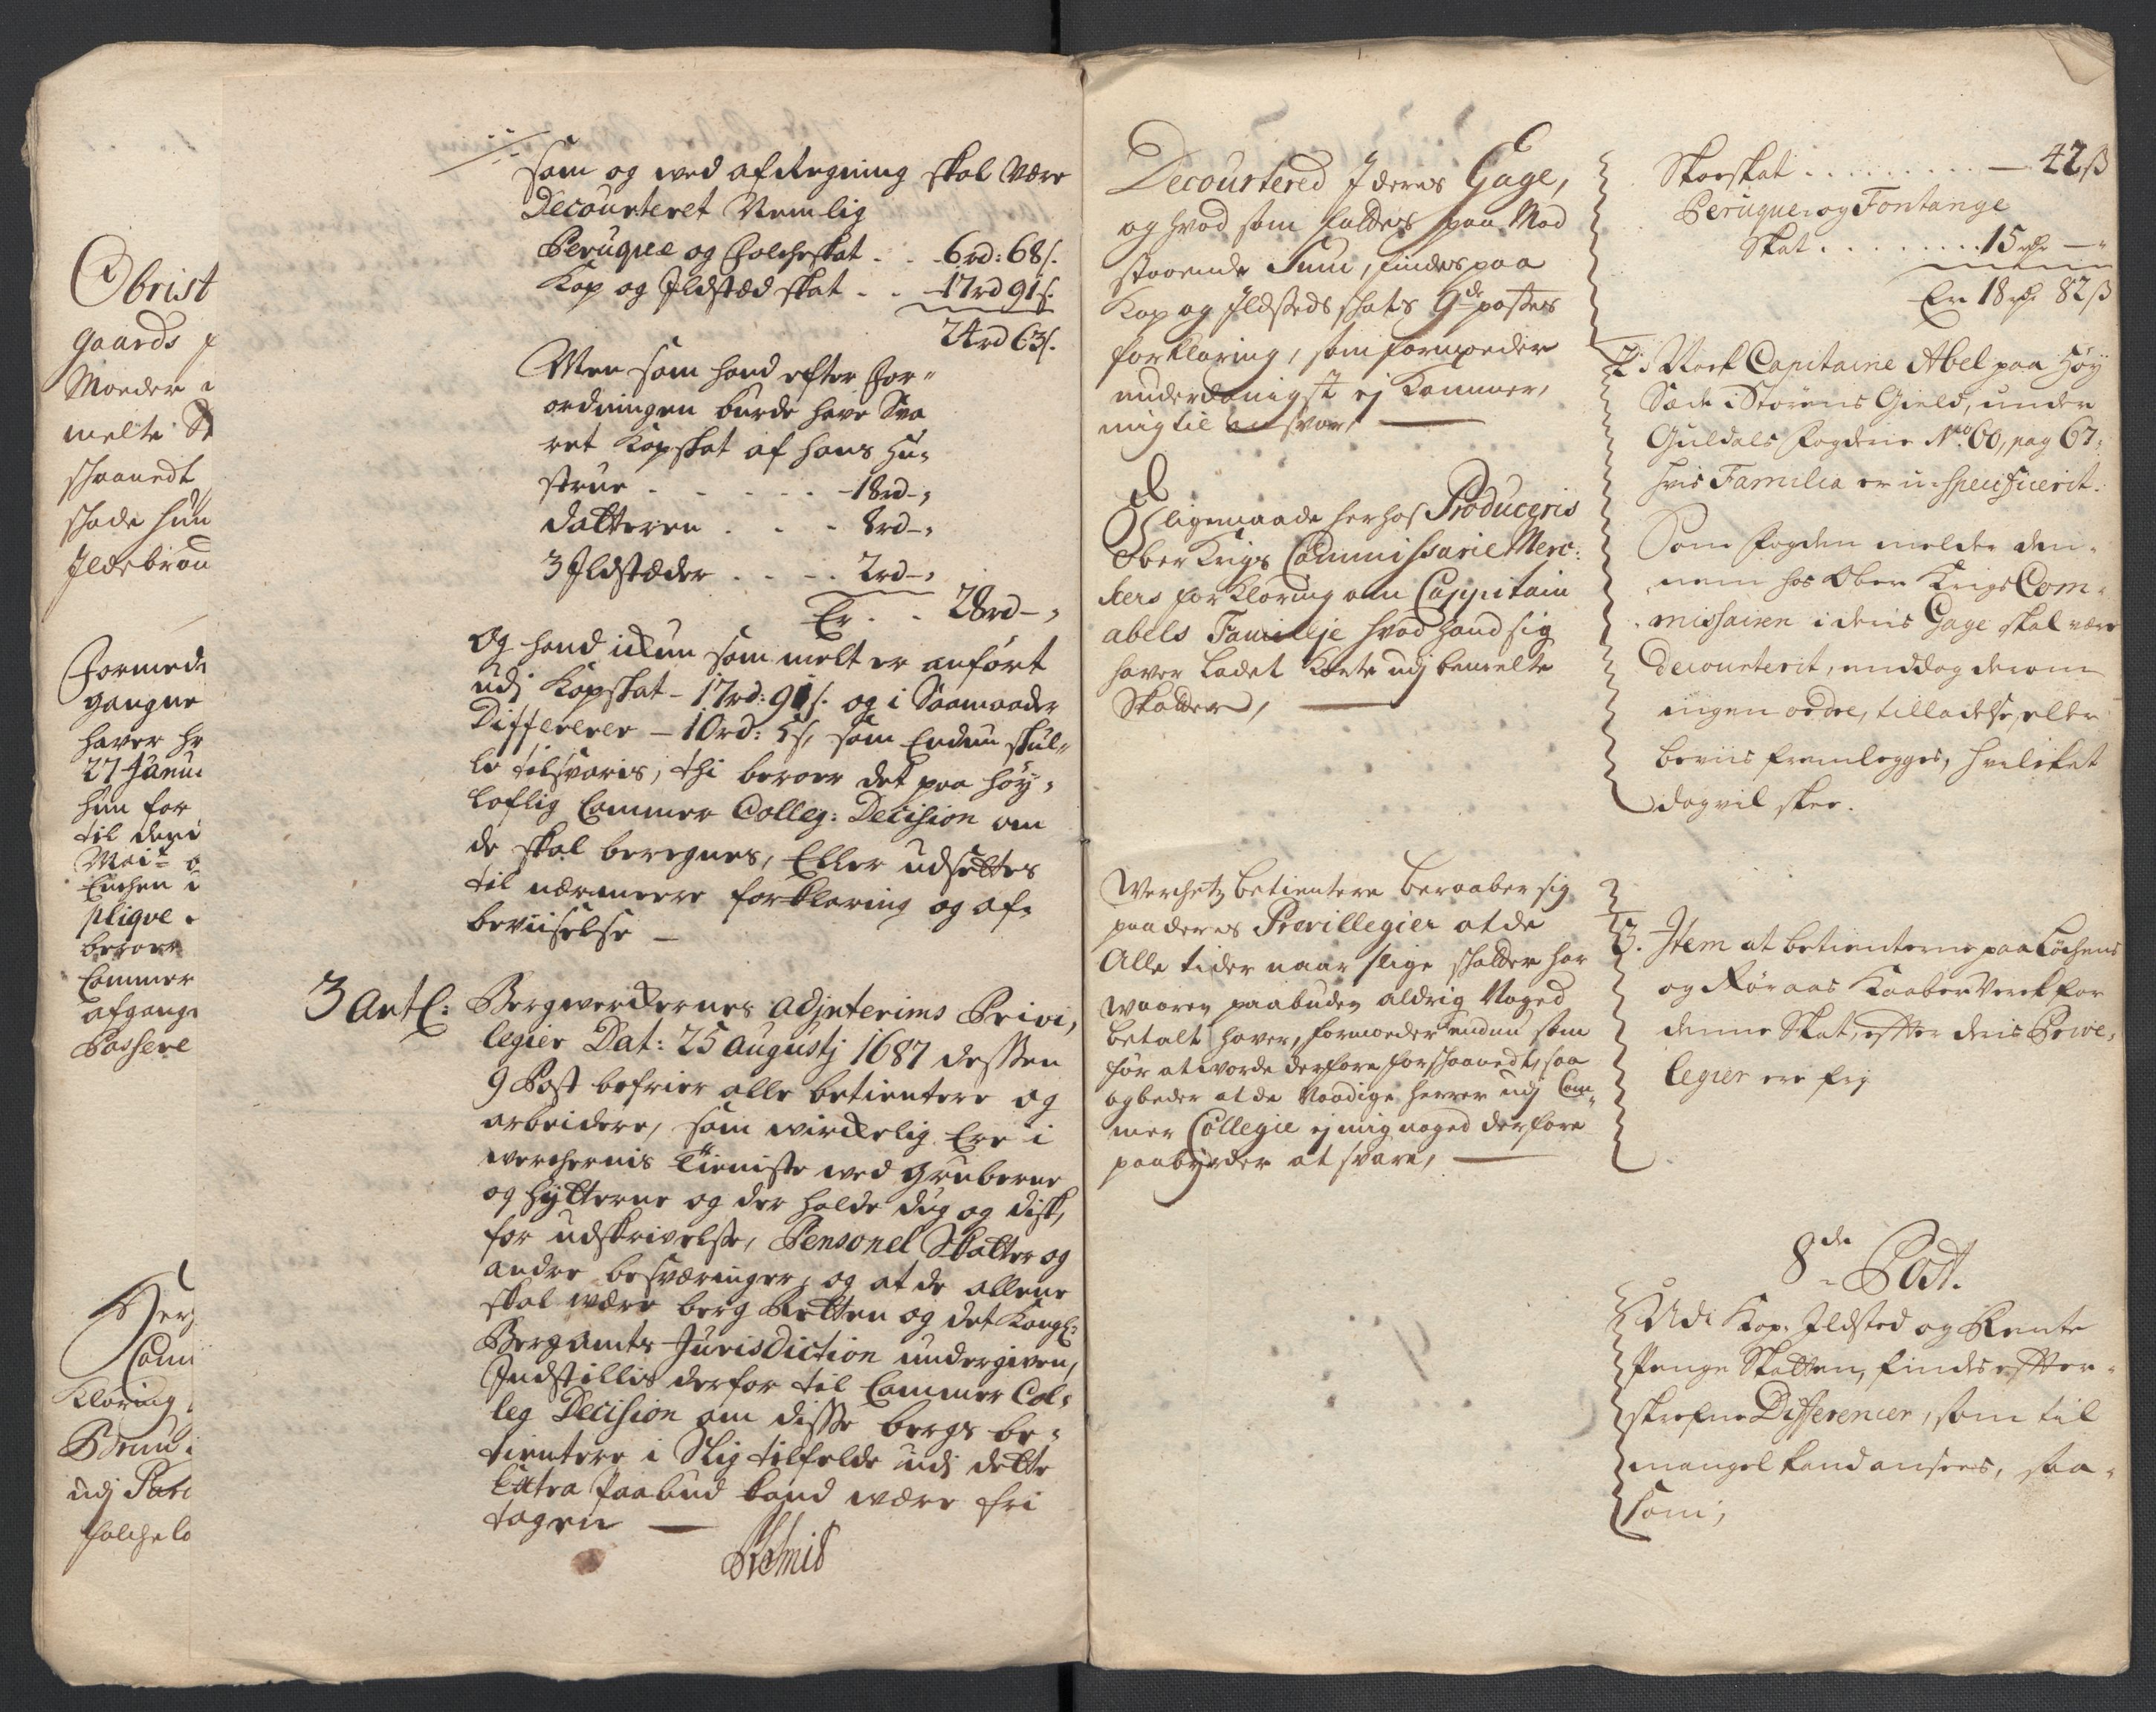 Obrist
gaards
Moeder
melte
schaanedt
skade hun
Ildebran
Formed
gangne
haver
27 Janu
hun for
til deri
Mai
Enchen
plique
beroer
Cammer
afgang
Passere
Her
Com
Klaring
udj
folchelo
som og ved afregning skal være
Decourteret Nemlig
Peruque og Folcheskat . . 6rd: 68s.
Kop og Ildstæd skat . . 17rd 91s.
24rd 63s.
Men som hand efter For„
ordningen burde have Sva
ret Kopskat af hans Hu„
strue . . . . . . 18rd-„
datteren . . . 8rd-„
3 Ildstæder . . . . 2rd-„
Er . . 28rd-„
og hand ickun som melt er anført
udj Kopskat - 17rd: 91s. og i Saamaader
Differerer - 10rd: 5s, som Endnu skul„
le tilsvaris, thi beroer det paa Høy„
loflig Cammer Colleg: Decision om
de skal beregnes, Eller udsettes
til nærmere forklaring og af„
beviiselse —
3 Antl: Bergwerckernes adjnterims Privi„
legier Dat: 25 Augustj 1687 dessen
9 Post befrier alle betientere og
arbeidere, som wirckelig Ere i
werchernis Tieniste ved Gruberne
og Hytterne og der holde dug og disk,
for udskrivelse, Personel Skatter og
andre besværinger, og at de allene
skal være berg Retten og det Kongl:
Bergamts Jurisdiction undergiven,
Indstillis derfor til Cammer Col„
leg Decision om disse bergs be„
tientere i Slig tilfelde udj dette
Extra Paabud kand være fri
tagen —
Decourtered J deres Gage,
og hvad som falder paa Mod
staaende Sum, findes paa
Kop og Ildsteds skats 9de postes
forklaring, som formoeder
underdanigst ej kommer,
mig til ansvar, —
J ligemaade herhos Produceris
Ober Krigs Commissarie Merc:
kers forklaring om Cappitain
abels Famillje hvad hand sig
haver ladet korte udj bemelte
Skatter, —
Werchetz betientere beraaber sig
paa deres Prævillegier at de
Alle tider naar slige skatter har
waaren paabuden aldrig Noged
betalt haver, formoeder endnu som
før at worde derfore forskaanedt, saa
og beder at de Naadige herrer udj Cam„
mer Collegie ej mig noged derfore
paabyrder at svare, —
Skoeskat . . . . . . . . . — 42ß
Peruque og Fontange
Skat . . . . . . . . 15 rdr —„
Er 18 rdr 82ß
2. Nock Capitaine Abel paa Høy
Sæde i Størens Gield, under
Guldals Fogderie No. 60, pag 67:
hvis Familia er u-specificerit.
Som Fogden melder den„
nem hos Ober Krigs Com„
missairen i deris Gage skal være
decourterit, enddog derom
ingen ordre, tilladelse, eller
beviis fremlegges, hvilcket
dog vil skee.
3. Item at betienterne paa Løchens
og Røraas Kaaber Verck for
denne Skat, efter deris Prive„
legier ere frj
8de Post.
Udi Kop. Ildsted og Rente
Penge Skatten, findes efter„
skrefne Differencer, som til
mangel kand ansees, saa„
som;